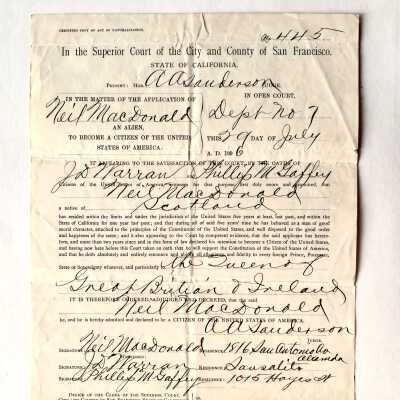 CERTIFIED COPY OF ACT OF NATURALIZATION.
No 445
In the Superior Court of the City and County of San Francisco.
STATE OF CALIFORNIA.
PRESENT: HON. A A Sanderson JUDGE.
IN THE MATTER OF THE APPLICATION OF
IN OPEN COURT,
Neil MacDonald
Dept No 7
AN ALIEN,
TO BECOME A CITIZEN OF THE UNITED STATES OF AMERICA.
THIS 29 DAY OF July
A. D.
IT APPEARING TO THE SATISFACTION OF THIS COURT, BY THE OATHS OF
J D Warran Phillip M Gaffey
citizens of the United States of America, witnesses for that purpose, first duly sworn and examined, that
Neil MacDonald
a native of Scotland
has resided within the limits and under the jurisdiction of the United States five years at least, last past, and within the
State of California for one year last past; and that during all of said five years' time he has behaved as a man of good
moral character, attached to the principles of the Constitution of the United States, and well disposed to the good order
and happiness of the same; and it also appearing to the Court by competent evidence, that the said applicant has heretofore,
and more than two years since and in due form of law declared his intention to become a Citizen of the United States,
and having now here before this Court taken an oath that he will support the Constitution of the United States of America,
and that he doth absolutely and entirely renounce and abjure all allegiance and fidelity to every foreign Prince, Potentate,
State or Sovereignty whatever, and particularly to the Queen of
Great Britian & Ireland
IT IS THEREFORE ORDERED, ADJUDGED AND DECREED, that the said
Neil MacDonald
be, and he is hereby admitted and declared to be a CITIZEN OF THE UNITED STATES OF AMERICA.
A A Sanderson
JUDGE.
SIGNATURE Neil MacDonald RESIDENCE 1816 San Antonio Av
Alameda
SIGNATURE J D Warran RESIDENCE Sausalito
SIGNATURE Phillip M Gaffey RESIDENCE 1015 Hayes St
OFFICE OF THE CLERK OF THE SUPERIOR COURT,